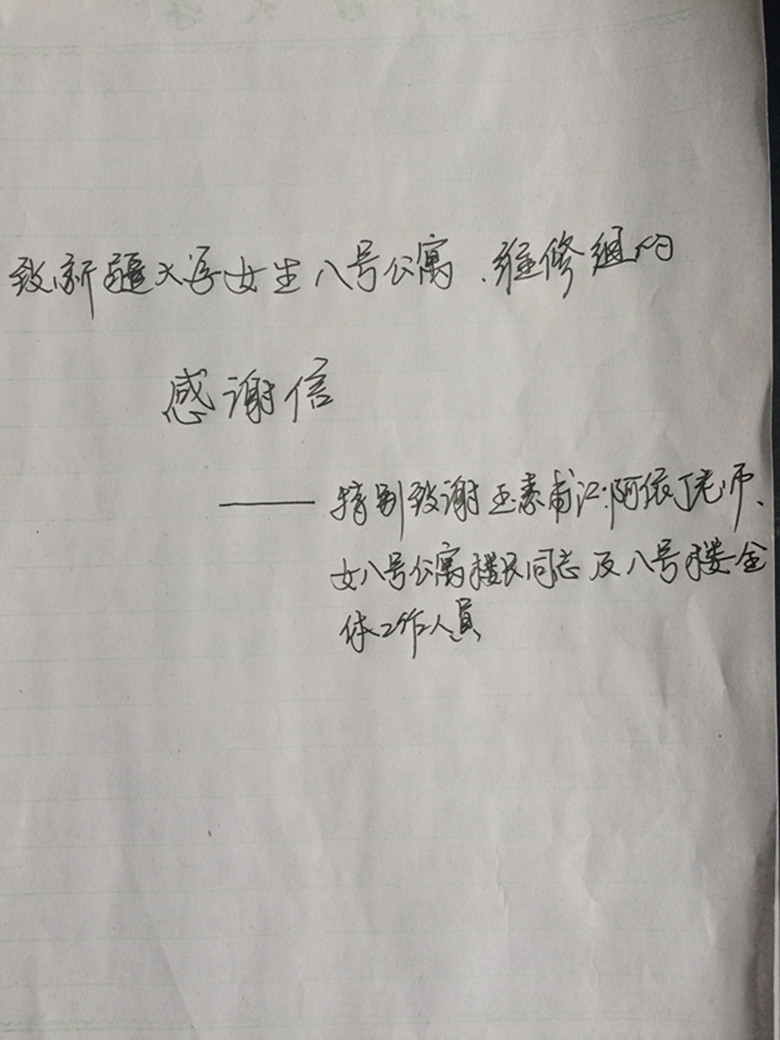 致新疆大学女生八号公寓、维修组的
感谢信
——特别致谢玉素甫江·阿依丁老师、
女八号公寓楼民同志及八号楼全
体工作人员